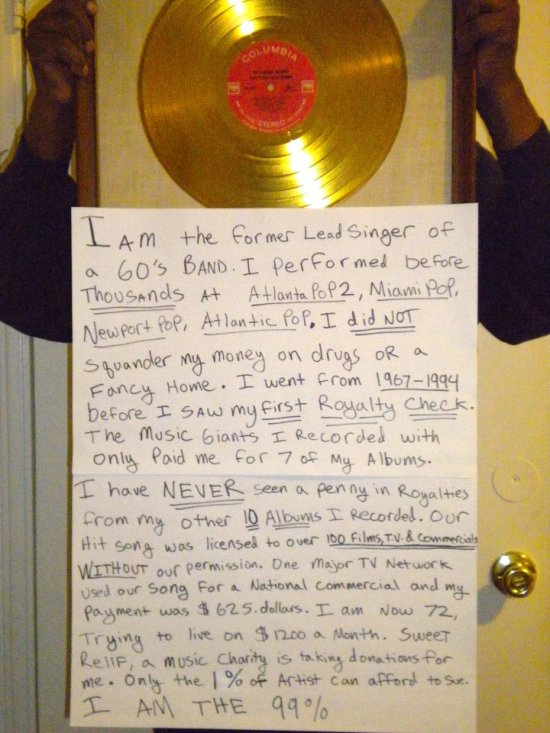 COLUMBIA
STEREO
I AM the former Lead Singer of
a 60's BAND. I performed before
Thousands At Atlanta Pop 2, Miami Pop,
Newport Pop, Atlantic Pop. I did NOT
squander my money on drugs OR a
Fancy Home. I went from 1967-1994
before I SAW my first Royalty Check.
The Music Giants I Recorded with
only Paid me for 7 of My Albums.
I have NEVER seen a penny in Royalties
from my other 10 Albums I Recorded. Our
Hit song was licensed to over 100 films, T.V. & Commercials
WITHOUT our permission. One Major TV Network
used our song for a National Commercial and my
payment was $ 625. dollars. I am Now 72,
Trying to live on $ 1200 a Month. Sweet
Relif, a music Charity is taking donations for
me. Only the 1% of Artist can afford to sue.
I AM THE 99%